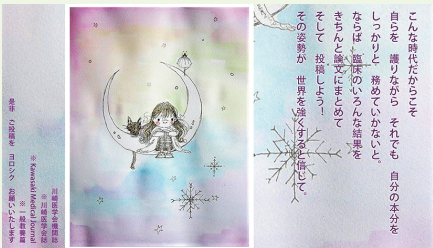 こんな時代だからこそ
自らを 護りながら それでも 自分の本分を
しっかりと 務めていかないと。
ならば 臨床のいろんな結果を
きちんと論文にまとめて
そして 投稿しよう！
その姿勢が 世界を強くすると信じて。
川崎医学会機関誌
※ 川崎医学会誌
※ Kawasaki Medical Journal
※ 一般教養篇
是非 ご投稿を ヨロシク お願いいたします